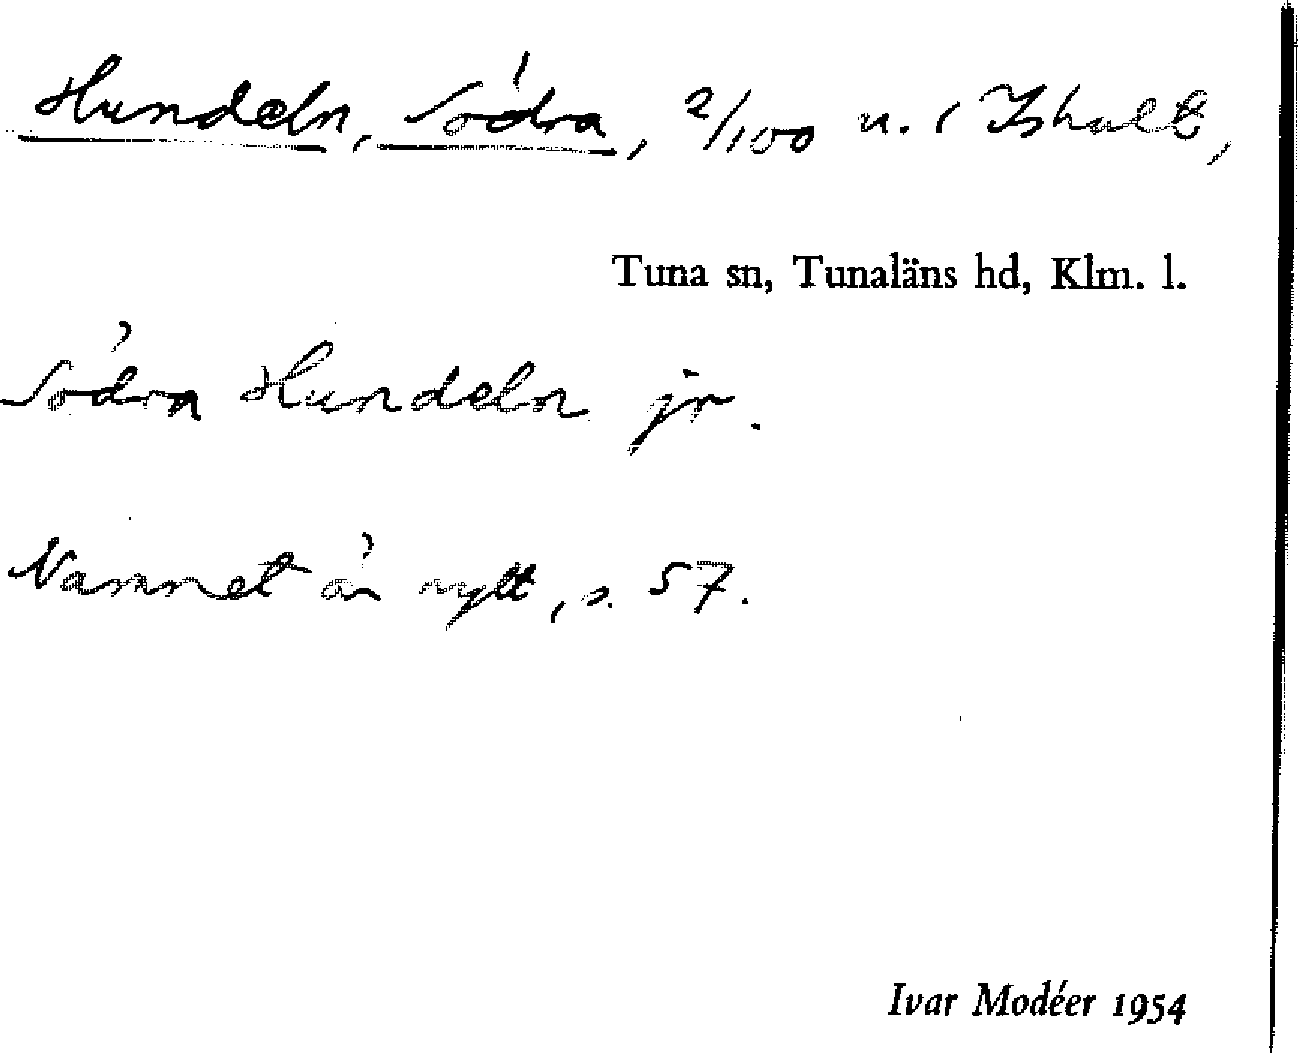 Hundeln, Södra, 2/100 u. i Ishult,
Tuna sn, Tunaläns hd, Klm. l.
Södra Hundeln jr.
Namnet är nytt, s. 57.
Ivar Modéer 1954